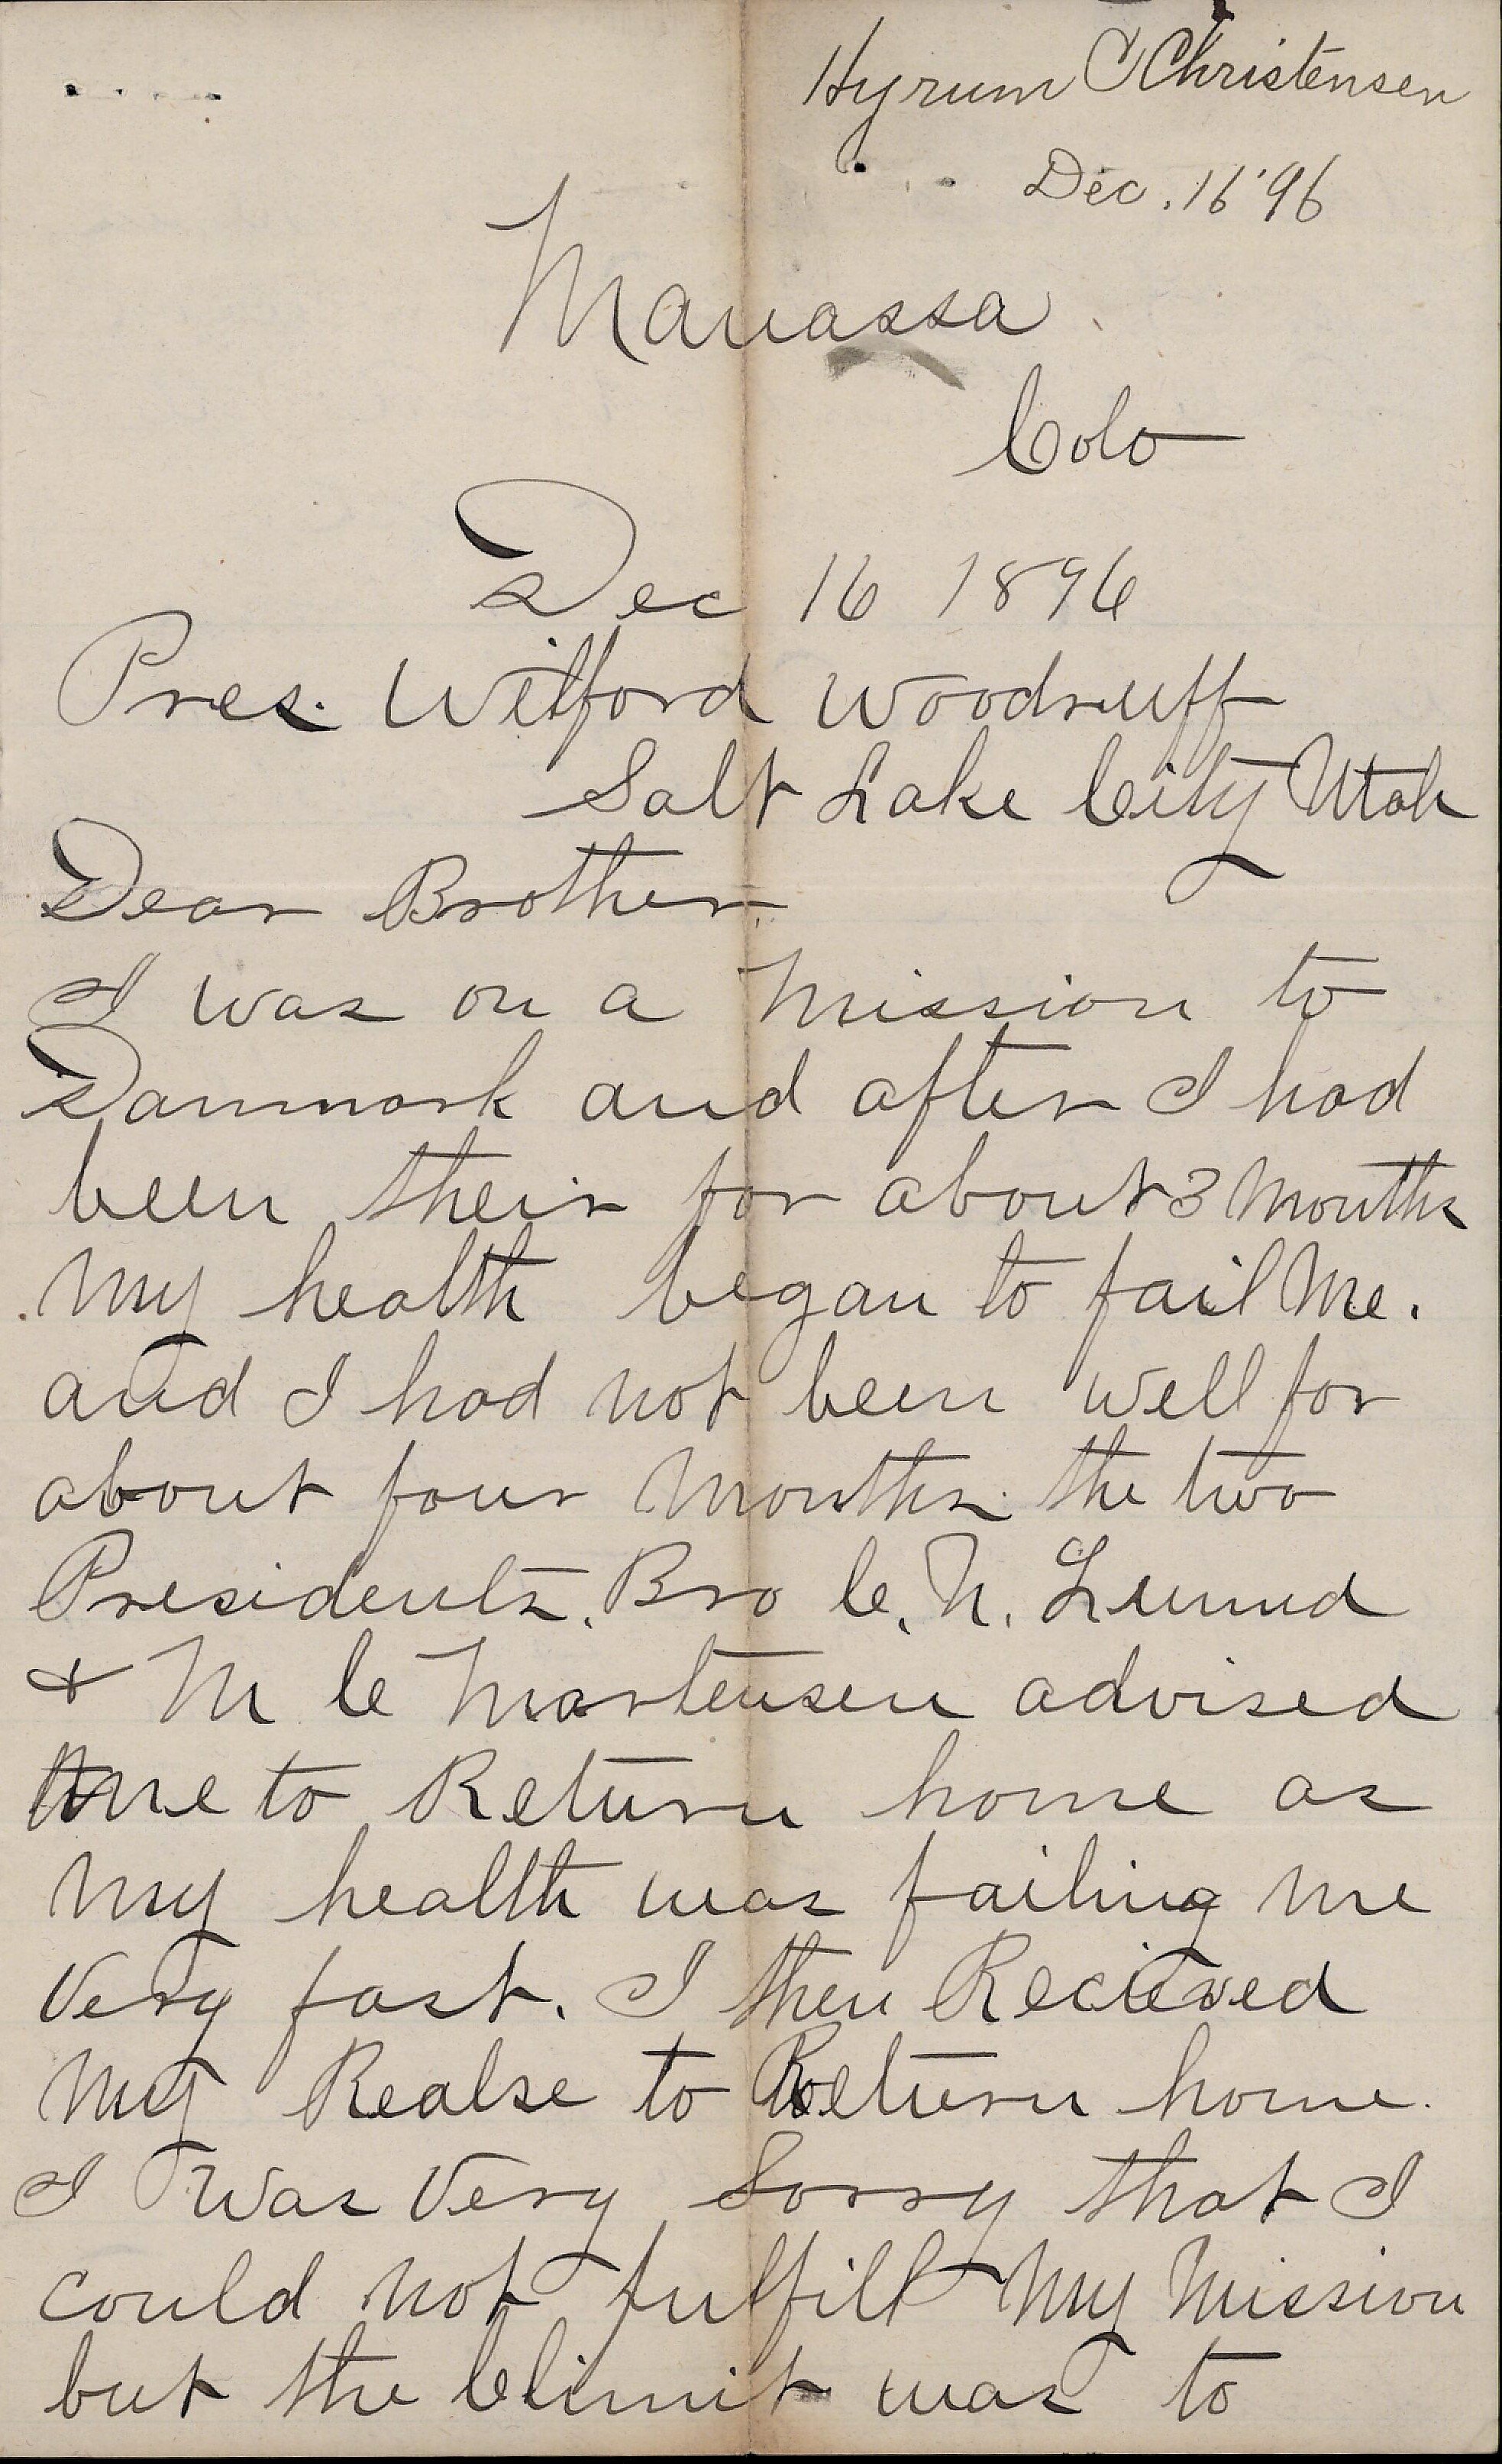 Hyrum C Christensen
Dec. 16 '96
Manassa
Colo
Dec 16 1896
Pres. Wilford Woodruff
Salt Lake City Utah
Dear Brother
I was on a Mission to
Danmark and after I had
been their for about 3 Months
My health began to fail Me.
and I had not been well for
about four Months. the two
Presidents. Bro C. N. Lunnd
& M C Martensen advised
me to Return home as
My health was failing me
Very fast. I then Recieved
My Realse to Return home.
I was Very Sorry that I
could not fulfill My Mission
but the Climit was to